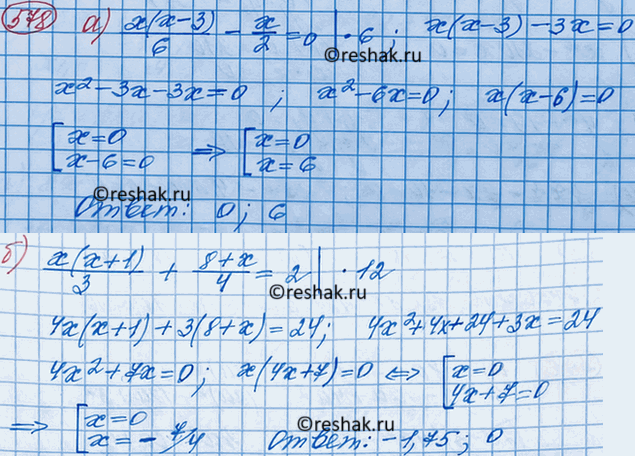 578 а) x(x-3)/6 - x/2 = 0 | · 6 ; x(x-3) - 3x = 0
©reshak.ru
x² - 3x - 3x = 0 ; x² - 6x = 0 ; x(x-6) = 0
[ x = 0 ⇒ [ x = 0
x - 6 = 0 x = 6
©reshak.ru
Ответ: 0 ; 6
б) x(x+1)/3 + 8+x/4 = 2 | · 12
©reshak.ru
4x(x+1) + 3(8+x) = 24 ; 4x² + 4x + 24 + 3x = 24
4x² + 7x = 0 ; x(4x+7) = 0 ⇔ [ x = 0
4x + 7 = 0
⇒ [ x = 0
x = - 7/4 Ответ: -1,75 ; 0
©reshak.ru